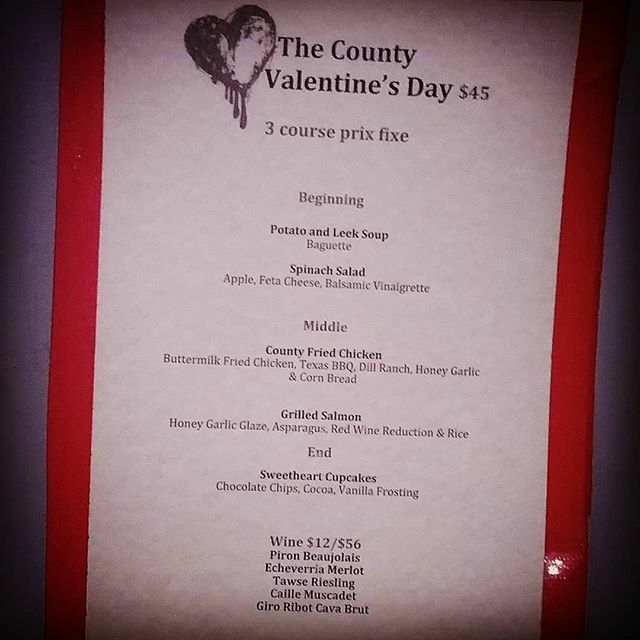 The County
Valentine's Day $45
3 course prix fixe
Beginning
Potato and Leek Soup
Baguette
Spinach Salad
Apple, Feta Cheese, Balsamic Vinaigrette
Middle
County Fried Chicken
Buttermilk Fried Chicken, Texas BBQ, Dill Ranch, Honey Garlic
& Corn Bread
Grilled Salmon
Honey Garlic Glaze, Asparagus, Red Wine Reduction & Rice
End
Sweetheart Cupcakes
Chocolate Chips, Cocoa, Vanilla Frosting
Wine $12/$56
Piron Beaujolais
Echeverria Merlot
Tawse Riesling
Caille Muscadet
Giro Ribot Cava Brut